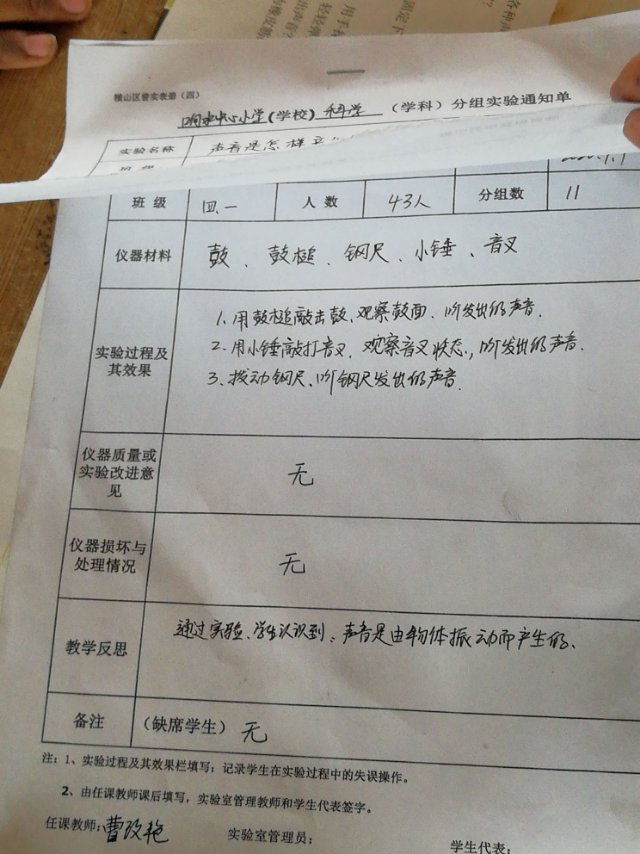 横山区普实表册（四）
响水中心小学（学校）科学（学科）分组实验通知单
实验名称 声音是怎样
班 级 四.一 人 数 43人 分组数 11
仪器材料 鼓、鼓槌、钢尺、小锤、音叉
实验过程及其效果
1、用鼓槌敲击鼓、观察鼓面、听发出的声音.
2、用小锤敲打音叉、观察音叉状态，听发出的声音.
3、拨动钢尺、听钢尺发出的声音.
仪器质量或
实验改进意
见
无
仪器损坏与
处理情况
无
教学反思 通过实验、学生认识到：声音是由物体振动而产生的、
备注 （缺席学生）无
注：1、实验过程及其效果栏填写：记录学生在实验过程中的失误操作。
2、由任课教师课后填写，实验室管理教师和学生代表签字。
任课教师：曹改艳 实验室管理员： 学生代表：